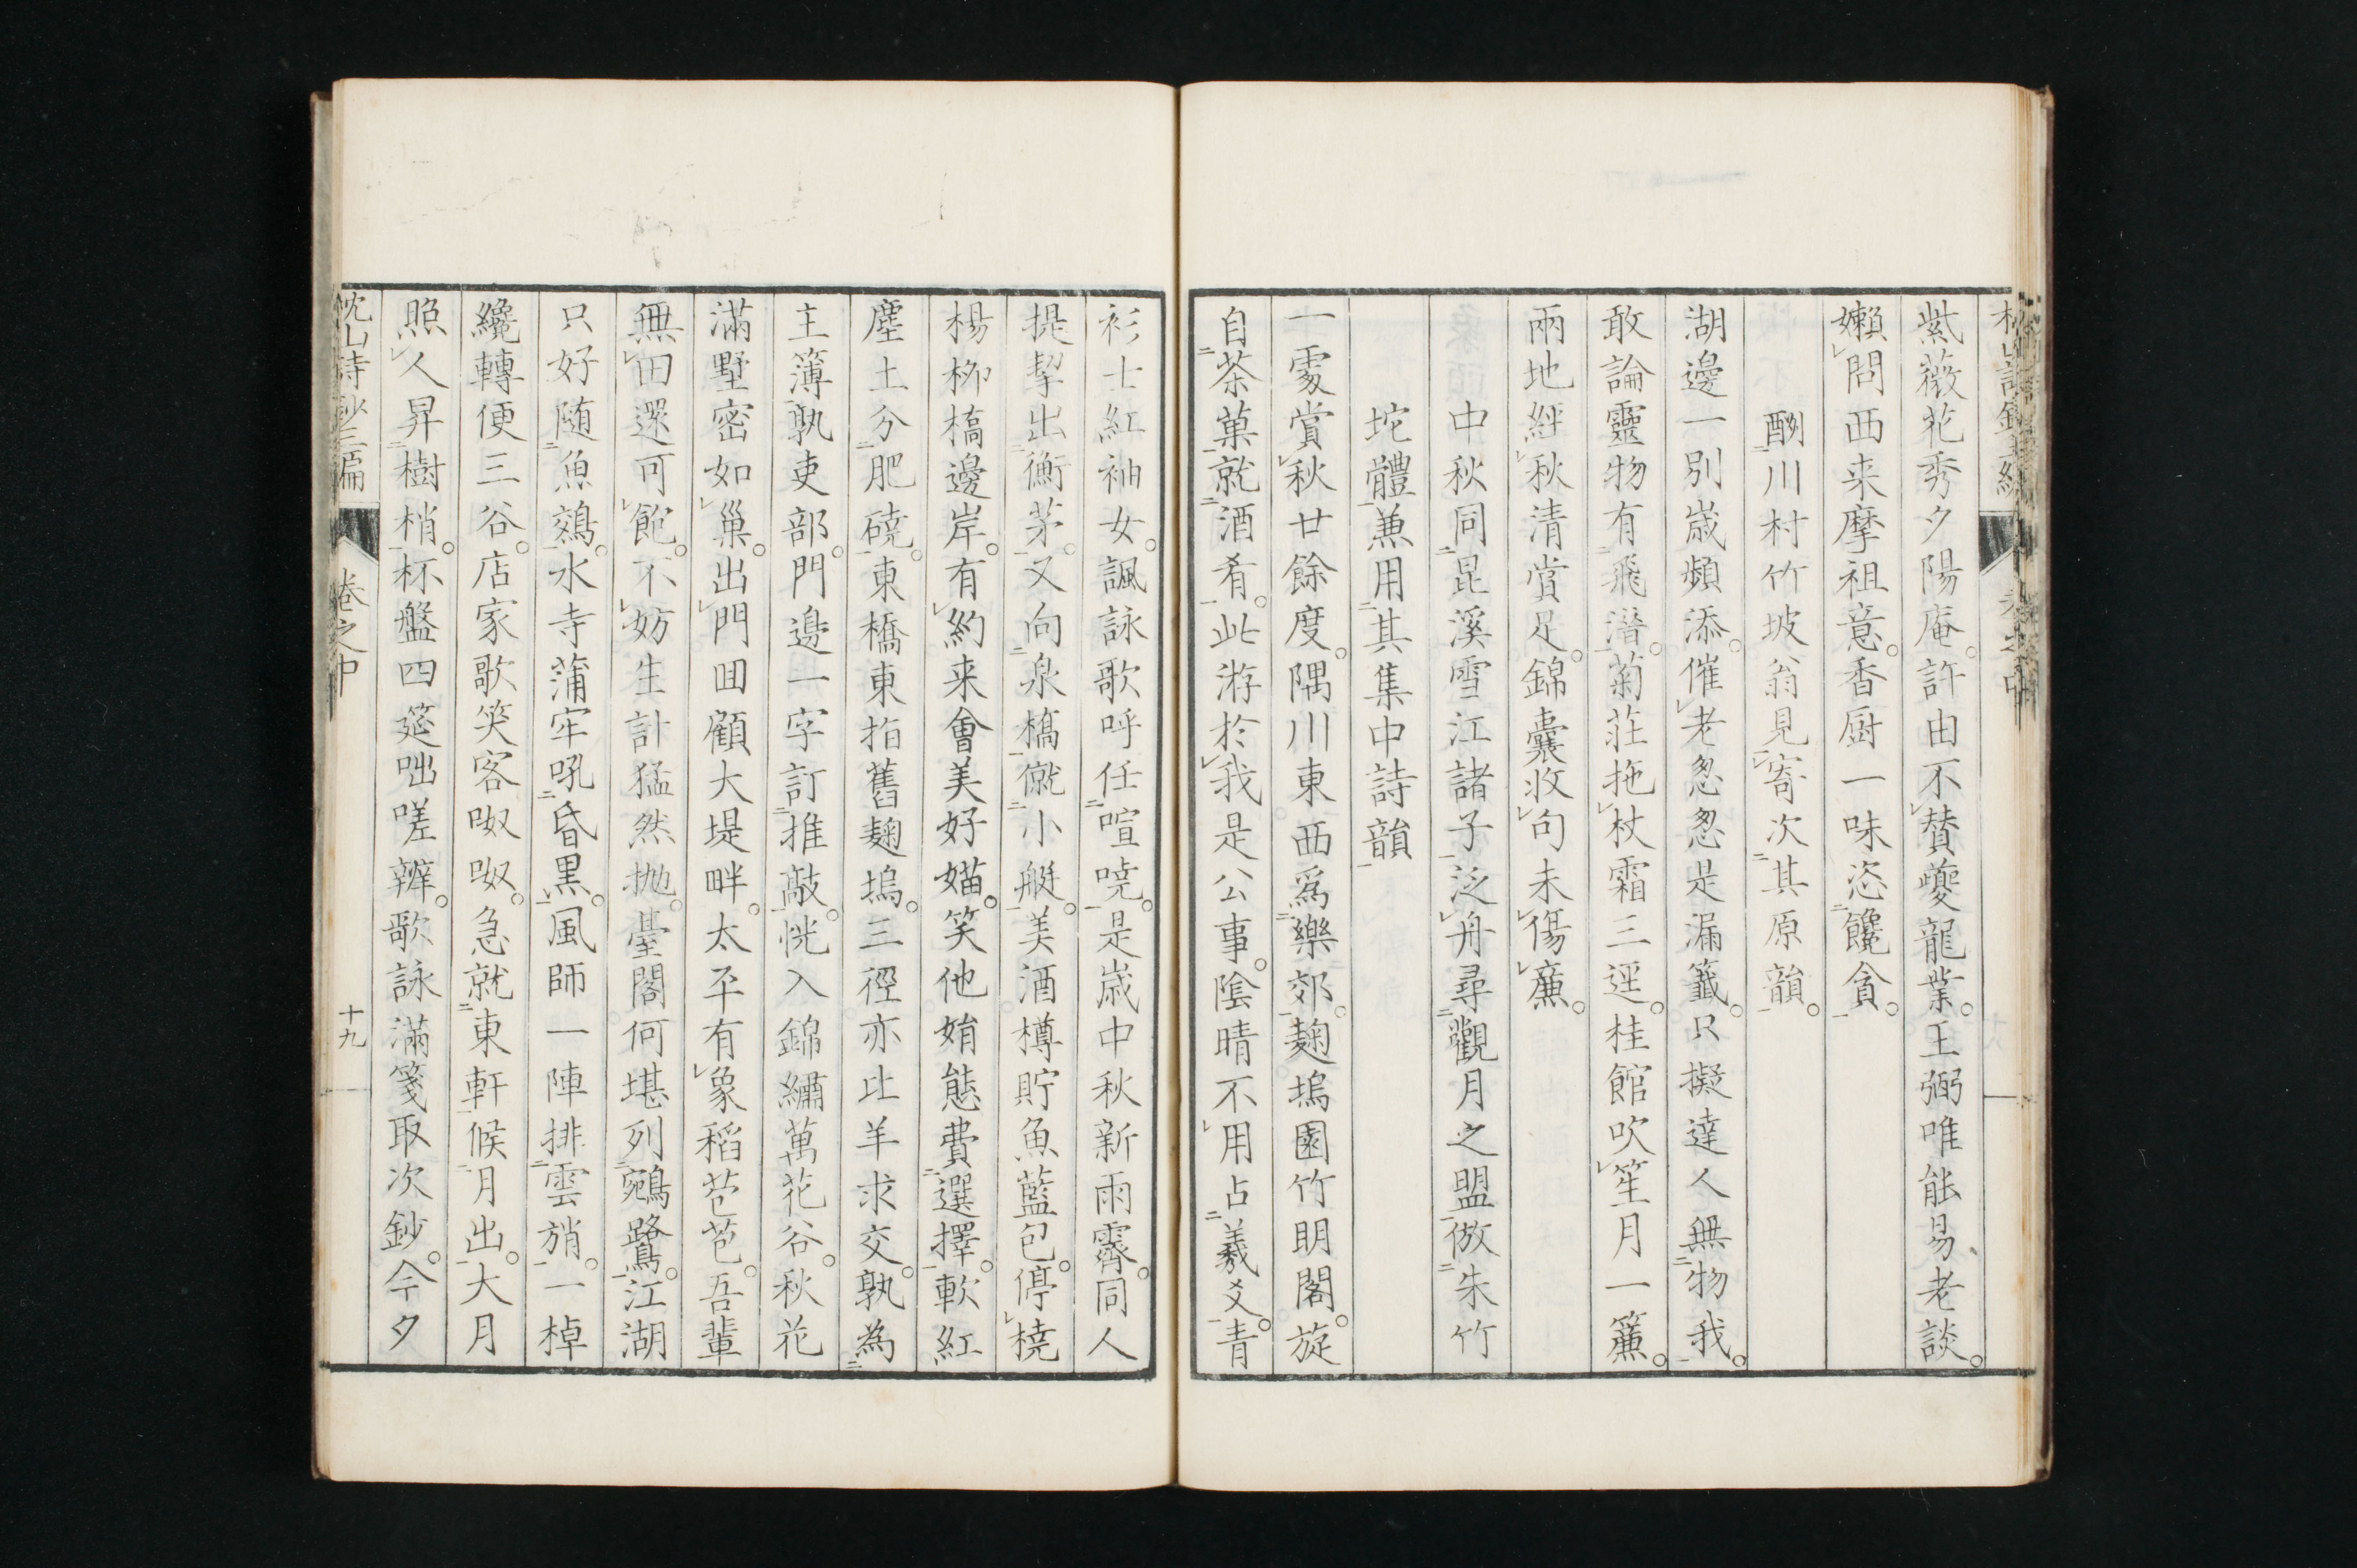 紫薇花秀夕陽庵。許由不賛夔龍業。王弼唯能易老談。
嬾問西来摩祖意。香厨一味恣饞貪。
酬川村竹坡翁見寄次其原韻。
湖邊一別歳頻添。催老怱怱是漏籤。只擬達人無物我。
敢論靈物有飛潜。菊荘拖杖霜三逕。桂館吹笙月一簾。
兩地経秋清賞足。錦囊收句未傷廉。
中秋同昆溪雪江諸子泛舟尋觀月之盟倣朱竹
垞體兼用其集中詩韻
一處賞秋廿餘度。隅川東西為樂郊。麹塢園竹明閣。旋
自茶菓就酒肴。此游於我是公事。陰晴不用占羲爻。青
衫士紅袖女。諷詠歌呼任喧哓。是歳中秋新雨霽。同人
提挈出衡茅。又向泉橋僦小艇。美酒樽貯魚藍包。停橈
楊柳橋邊岸。有約来會美好媌。笑他媚態費選擇。軟紅
塵土分肥磽。東橋東指舊麹塢。三徑亦比羊求交。孰為
主簿孰吏部。門邊一字訂推敲。恍入錦繡萬花谷。秋花
滿墅密如巢。出門回顧大堤畔。太平有象稻苞苞。吾輩
無田還可飽。不妨生計猛然抛。臺閣何堪列鵷鷺。江湖
只好随魚鵁。水寺蒲牢吼昏黒。風師一陣排雲旓。一棹
纔轉便三谷。店家歌笑客呶呶。急就東軒候月出。大月
照人昇樹梢。杯盤四筵咄嗟辨。歌詠滿箋取次鈔。今夕
枕山詩鈔三編 卷之中 十九